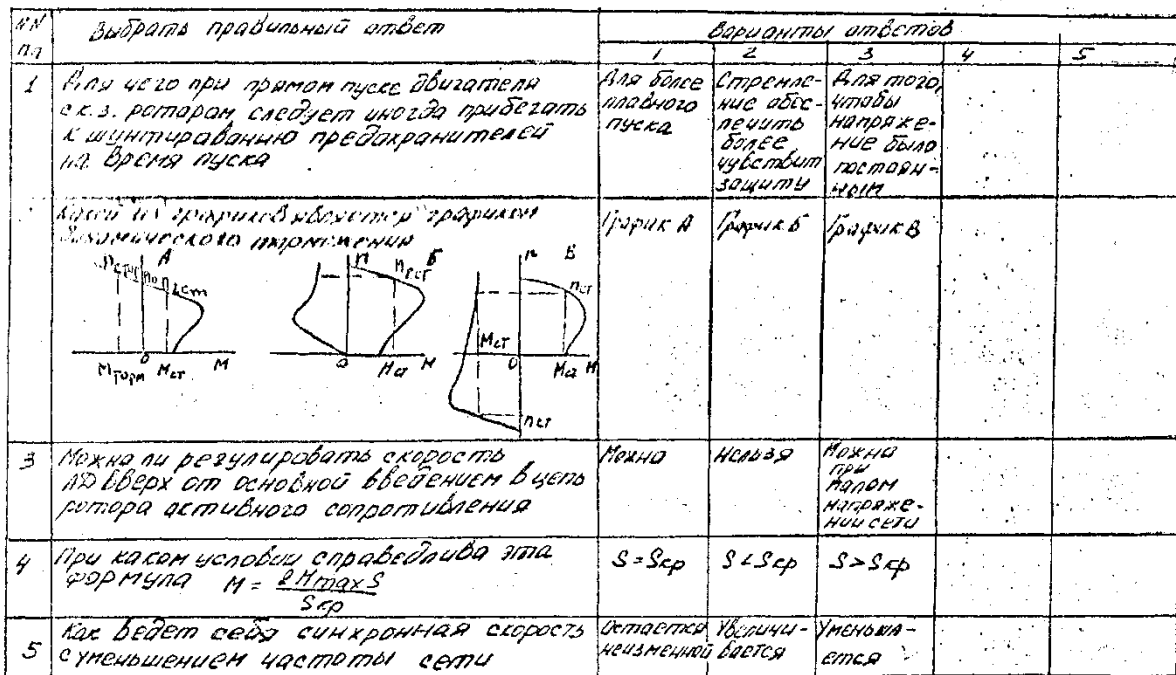 NN Выбрать правильный ответ Варианты ответов
пп 1 2 3 4 5
1 Для чего при прямом пуске двигателя
с к.з. ротором следует иногда прибегать
к шунтированию предохранителей
на время пуска
Для более
плавного
пуска
Стремле-
ние обес-
печить
более
чувствит
защиту
Для того,
чтобы
напряже-
ние было
постоян-
ным
Какой из графиков является графиком
динамического торможения
График А График Б График В
А
n₀
M торм 0 Mст M
n Б
nст
0 Mст M
n В
nст
Mст
0 Mст M
nст
3 Можно ли регулировать скорость
АД вверх от основной введением в цепь
ротора активного сопротивления
Можно
Нельзя
Можно
при
малом
напряже-
нии сети
4 При каком условии справедлива эта
формула M = 2Mmax S / Sкр
S = Sкр S < Sкр S > Sкр
5 Как ведет себя синхронная скорость
с уменьшением частоты сети
Остается
неизменной
Увеличи-
вается
Уменьша-
ется